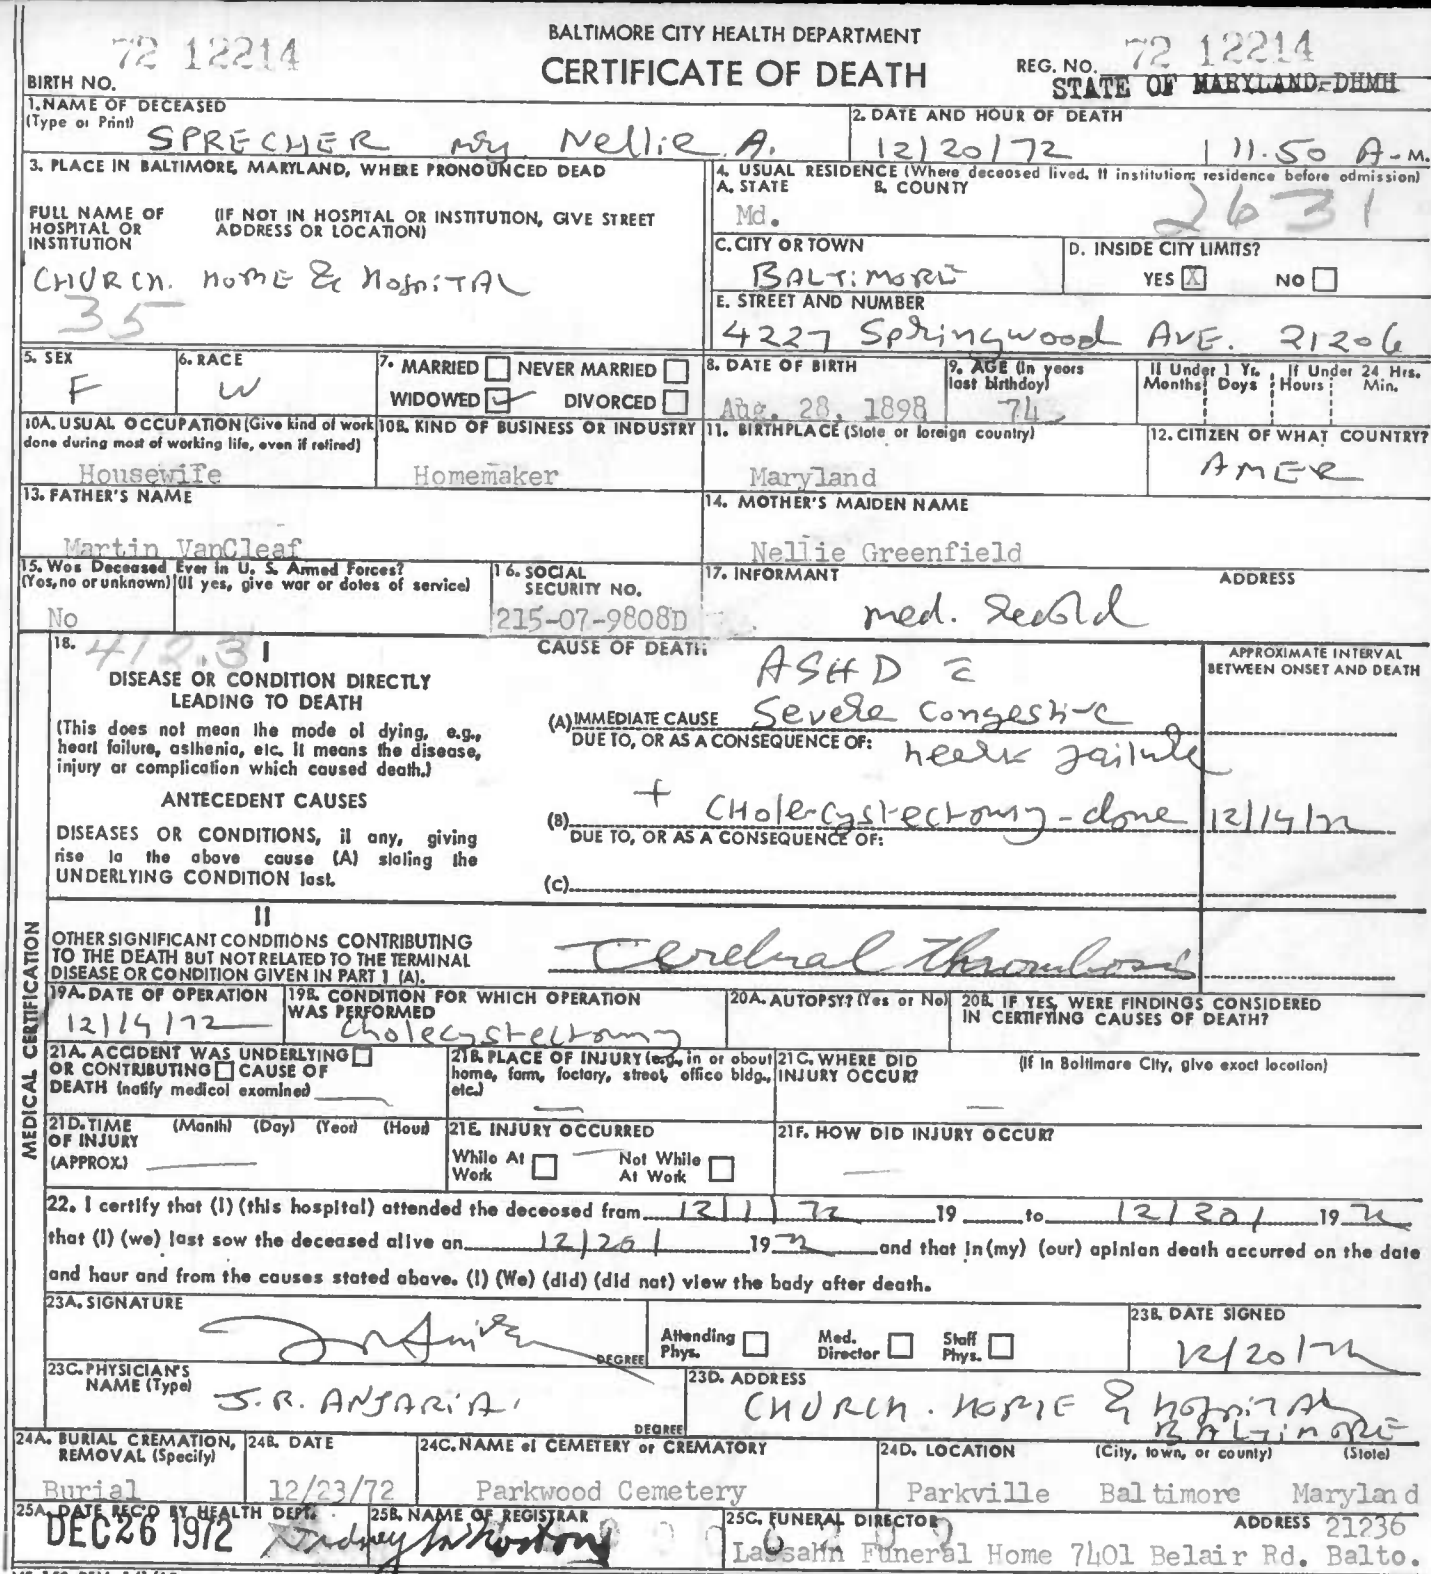 BALTIMORE CITY HEALTH DEPARTMENT
CERTIFICATE OF DEATH
72 12214
BIRTH NO.
REG. NO. 72 12214
STATE OF MARYLAND-DHMH
1. NAME OF DECEASED
(Type or Print) SPRECHER Nellie A.
2. DATE AND HOUR OF DEATH
12/20/72 11.50 A-M.
3. PLACE IN BALTIMORE, MARYLAND, WHERE PRONOUNCED DEAD
FULL NAME OF HOSPITAL OR INSTITUTION
(IF NOT IN HOSPITAL OR INSTITUTION, GIVE STREET ADDRESS OR LOCATION)
CHURCH. HOME & HOSPITAL
35
4. USUAL RESIDENCE (Where deceased lived. If institution; residence before admission)
A. STATE B. COUNTY
Md. 2631
C. CITY OR TOWN
BALTIMORE
D. INSIDE CITY LIMITS?
YES X NO
E. STREET AND NUMBER
4227 Springwood AVE. 21206
5. SEX
F
6. RACE
W
7. MARRIED NEVER MARRIED
WIDOWED ✓ DIVORCED
8. DATE OF BIRTH
Aug. 28, 1898
9. AGE (In years last birthday)
74
If Under 1 Yr. If Under 24 Hrs.
Months Days Hours Min.
10A. USUAL OCCUPATION (Give kind of work done during most of working life, even if retired)
Housewife
10B. KIND OF BUSINESS OR INDUSTRY
Homemaker
11. BIRTHPLACE (State or foreign country)
Maryland
12. CITIZEN OF WHAT COUNTRY?
AMER
13. FATHER'S NAME
Martin VanCleaf
14. MOTHER'S MAIDEN NAME
Nellie Greenfield
15. Was Deceased Ever in U. S. Armed Forces?
(Yes, no or unknown) (If yes, give war or dates of service)
No
16. SOCIAL SECURITY NO.
215-07-9808D
17. INFORMANT ADDRESS
med. Record
MEDICAL CERTIFICATION
18. 412.3 I
DISEASE OR CONDITION DIRECTLY
LEADING TO DEATH
(This does not mean the mode of dying, e.g.,
heart failure, asthenia, etc. It means the disease,
injury or complication which caused death.)
ANTECEDENT CAUSES
DISEASES OR CONDITIONS, if any, giving
rise to the above cause (A) stating the
UNDERLYING CONDITION last.
CAUSE OF DEATH:
APPROXIMATE INTERVAL
BETWEEN ONSET AND DEATH
ASHD c
(A) IMMEDIATE CAUSE Severe Congestive
DUE TO, OR AS A CONSEQUENCE OF: heart failure
+
(B) CHolecystectomy - done 12/14/72
DUE TO, OR AS A CONSEQUENCE OF:
(C)
II
OTHER SIGNIFICANT CONDITIONS CONTRIBUTING
TO THE DEATH BUT NOT RELATED TO THE TERMINAL
DISEASE OR CONDITION GIVEN IN PART 1 (A).
Cerebral thrombosis
19A. DATE OF OPERATION
12/14/72
19B. CONDITION FOR WHICH OPERATION
WAS PERFORMED
Cholecystectomy
20A. AUTOPSY? (Yes or No)
20B. IF YES, WERE FINDINGS CONSIDERED
IN CERTIFYING CAUSES OF DEATH?
21A. ACCIDENT WAS UNDERLYING
OR CONTRIBUTING CAUSE OF
DEATH (notify medical examiner)
21B. PLACE OF INJURY (e.g., in or about
home, farm, factory, street, office bldg.,
etc.)
21C. WHERE DID
INJURY OCCUR?
(If in Baltimore City, give exact location)
21D. TIME (Month) (Day) (Year) (Hour)
OF INJURY
(APPROX.)
21E. INJURY OCCURRED
While At Work Not While At Work
21F. HOW DID INJURY OCCUR?
22. I certify that (I) (this hospital) attended the deceased from 12/1/72 19 to 12/20/ 1972
that (I) (we) last saw the deceased alive on 12/20/ 1972 and that in (my) (our) opinion death accurred on the date
and hour and from the causes stated above. (I) (We) (did) (did not) view the body after death.
23A. SIGNATURE
DEGREE
Attending Phys. Med. Director Staff Phys.
23B. DATE SIGNED
12/20/72
23C. PHYSICIAN'S
NAME (Type)
J.R. ANJARIA.
DEGREE
23D. ADDRESS
CHURCH. HOME & HOSPITAL
BALTIMORE
24A. BURIAL CREMATION,
REMOVAL (Specify)
Burial
24B. DATE
12/23/72
24C. NAME of CEMETERY or CREMATORY
Parkwood Cemetery
24D. LOCATION (City, town, or county) (State)
Parkville Baltimore Maryland
25A. DATE REC'D BY HEALTH DEPT.
DEC 26 1972
25B. NAME OF REGISTRAR
25C. FUNERAL DIRECTOR ADDRESS 21236
Lassahn Funeral Home 7401 Belair Rd. Balto.